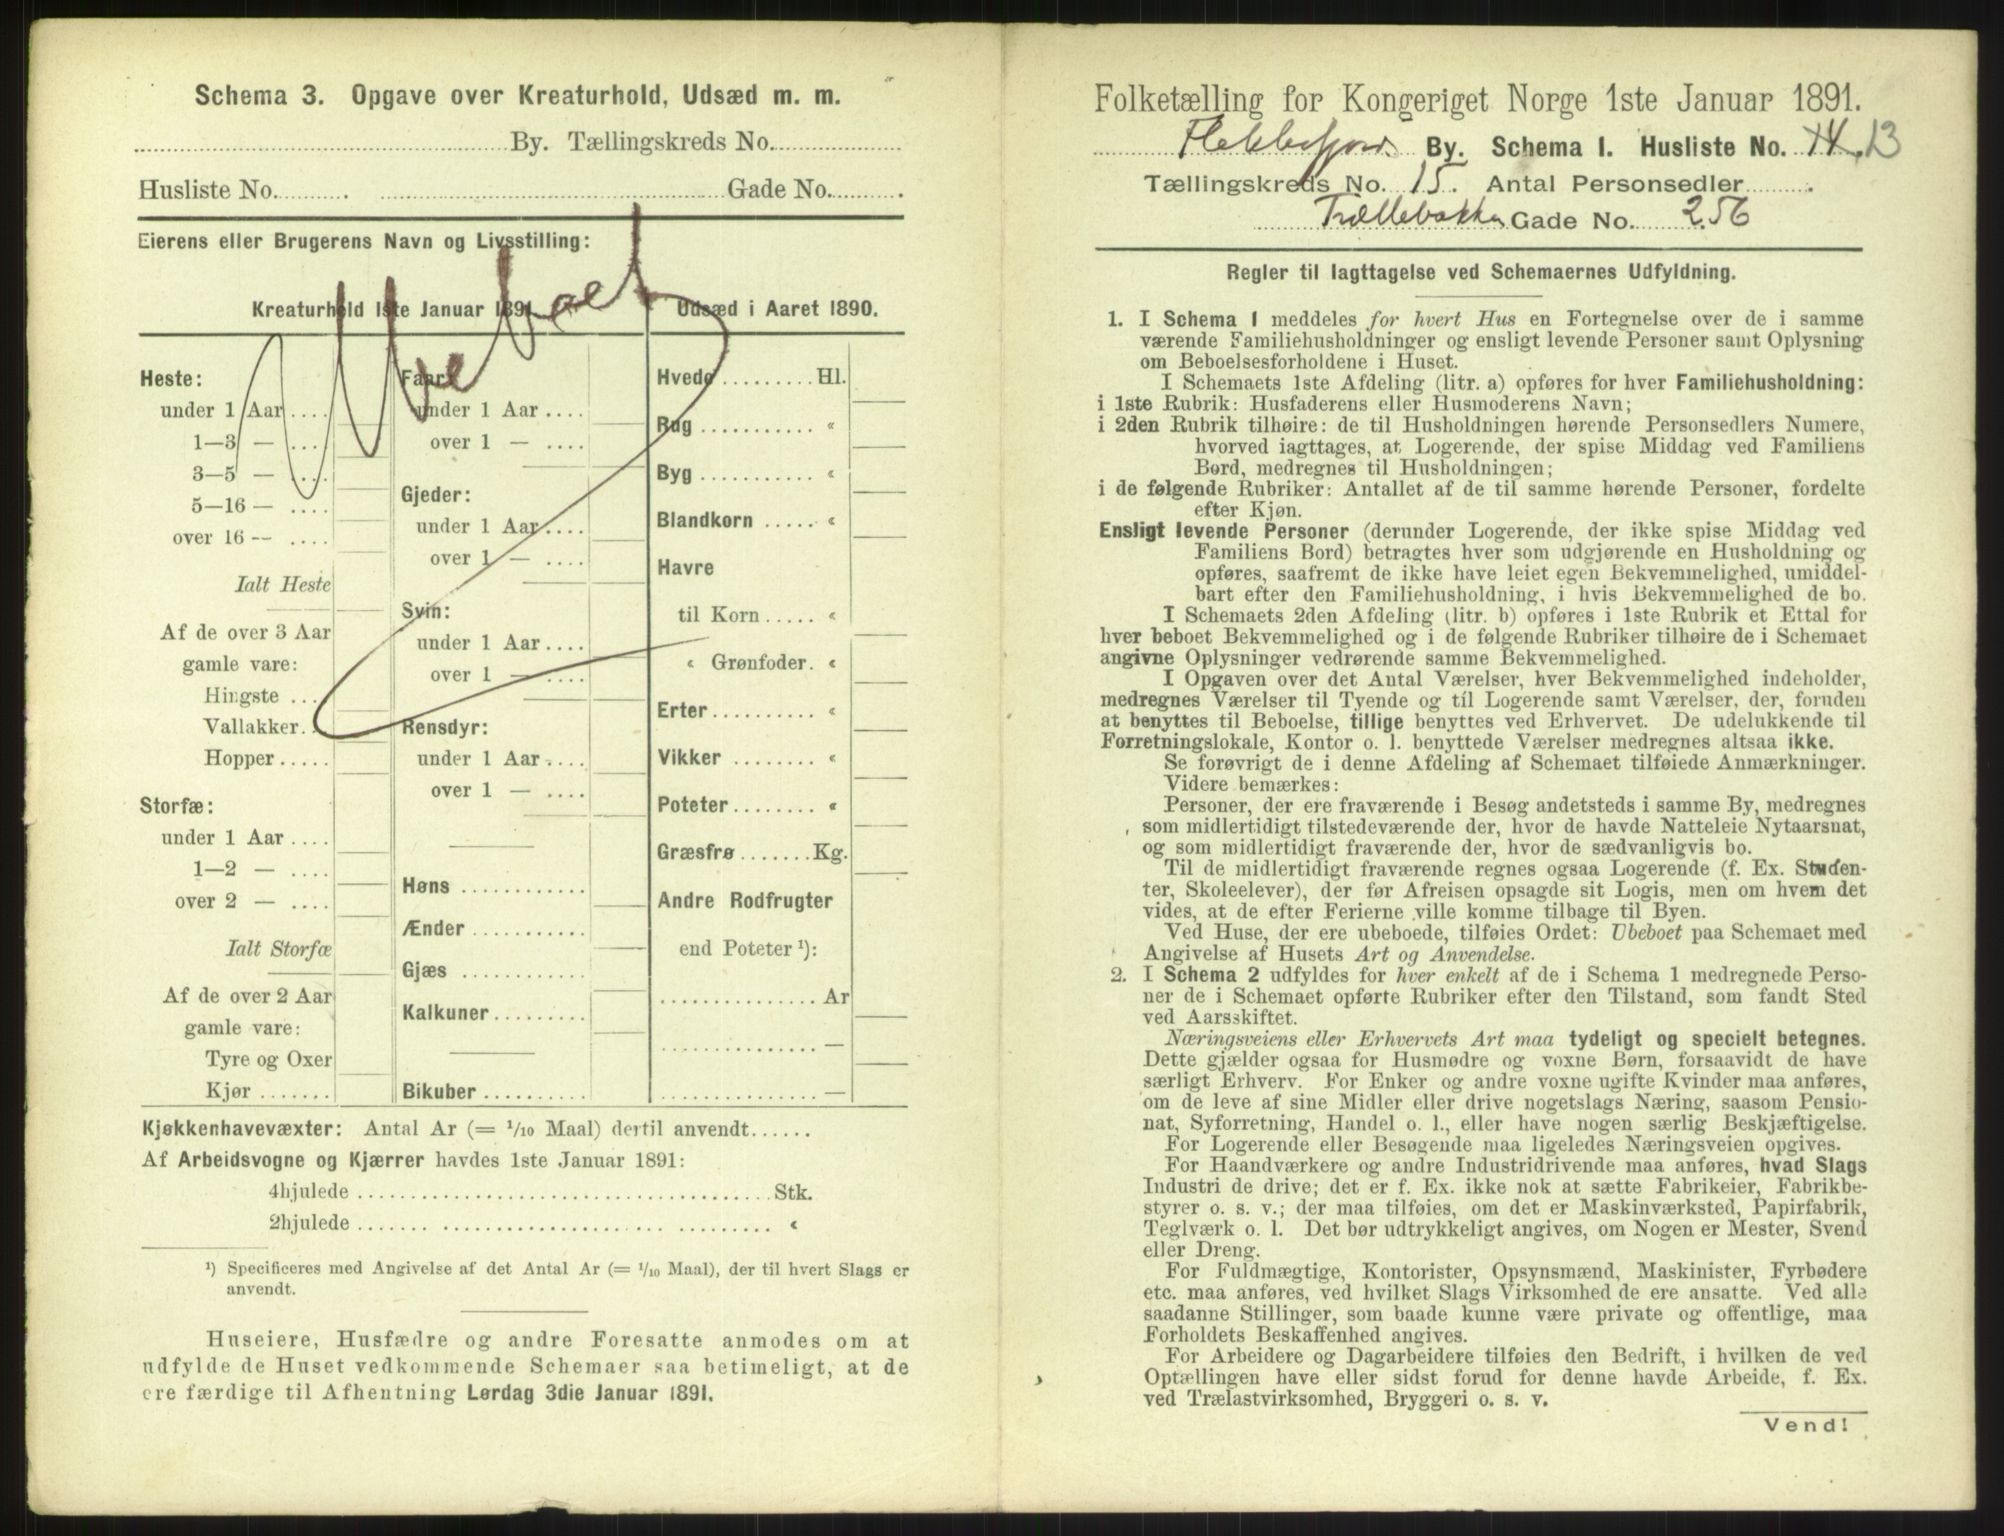 Schema 3. Opgave over Kreaturhold, Udsæd m. m.
By. Tællingskreds No.
Husliste No. Gade No.
Eierens eller Brugerens Navn og Livsstilling:
Ubeboet
Kreaturhold 1ste Januar 1891.
Heste:
under 1 Aar
1—3 —
3—5 —
5—16 —
over 16 —
Ialt Heste
Af de over 3 Aar
gamle vare:
Hingste
Vallakker
Hopper
Storfæ:
under 1 Aar
1—2 —
over 2 —
Ialt Storfæ
Af de over 2 Aar
gamle vare:
Tyre og Oxer
Kjør
Faar:
under 1 Aar
over 1 —
Gjeder:
under 1 Aar
over 1 —
Svin:
under 1 Aar
over 1 —
Rensdyr:
under 1 Aar
over 1 —
Høns
Ænder
Gjæs
Kalkuner
Bikuber
Udsæd i Aaret 1890.
Hvede Hl.
Rug «
Byg «
Blandkorn «
Havre
til Korn «
« Grønfoder «
Erter «
Vikker «
Poteter «
Græsfrø Kg.
Andre Rodfrugter
end Poteter ¹):
Ar
—
—
Kjøkkenhavevæxter: Antal Ar (= 1/10 Maal) dertil anvendt
Af Arbeidsvogne og Kjærrer havdes 1ste Januar 1891:
4hjulede Stk.
2hjulede «
¹) Specificeres med Angivelse af det Antal Ar (= 1/10 Maal), der til hvert Slags er
anvendt.
Huseiere, Husfædre og andre Foresatte anmodes om at
udfylde de Huset vedkommende Schemaer saa betimeligt, at de
ere færdige til Afhentning Lørdag 3die Januar 1891.
Folketælling for Kongeriget Norge 1ste Januar 1891.
Flekkefjord By. Schema I. Husliste No. 14. 13
Tællingskreds No. 15. Antal Personsedler
Trællebakken Gade No. 256
Regler til Iagttagelse ved Schemaernes Udfyldning.
1. I Schema 1 meddeles for hvert Hus en Fortegnelse over de i samme
værende Familiehusholdninger og ensligt levende Personer samt Oplysning
om Beboelsesforholdene i Huset.
I Schemaets 1ste Afdeling (litr. a) opføres for hver Familiehusholdning:
i 1ste Rubrik: Husfaderens eller Husmoderens Navn;
i 2den Rubrik tilhøire: de til Husholdningen hørende Personsedlers Numere,
hvorved iagttages, at Logerende, der spise Middag ved Familiens
Bord, medregnes til Husholdningen;
i de følgende Rubriker: Antallet af de til samme hørende Personer, fordelte
efter Kjøn.
Ensligt levende Personer (derunder Logerende, der ikke spise Middag ved
Familiens Bord) betragtes hver som udgjørende en Husholdning og
opføres, saafremt de ikke have leiet egen Bekvemmelighed, umiddel-
bart efter den Familiehusholdning, i hvis Bekvemmelighed de bo.
I Schemaets 2den Afdeling (litr. b) opføres i 1ste Rubrik et Ettal for
hver beboet Bekvemmelighed og i de følgende Rubriker tilhøire de i Schemaet
angivne Oplysninger vedrørende samme Bekvemmelighed.
I Opgaven over det Antal Værelser, hver Bekvemmelighed indeholder,
medregnes Værelser til Tyende og til Logerende samt Værelser, der, foruden
at benyttes til Beboelse, tillige benyttes ved Erhvervet. De udelukkende til
Forretningslokale, Kontor o. l. benyttede Værelser medregnes altsaa ikke.
Se forøvrigt de i denne Afdeling af Schemaet tilføiede Anmærkninger.
Videre bemærkes:
Personer, der ere fraværende i Besøg andetsteds i samme By, medregnes
som midlertidigt tilstedeværende der, hvor de havde Natteleie Nytaarsnat,
og som midlertidigt fraværende der, hvor de sædvanligvis bo.
Til de midlertidigt fraværende regnes ogsaa Logerende (f. Ex. Studen-
ter, Skoleelever), der før Afreisen opsagde sit Logis, men om hvem det
vides, at de efter Ferierne ville komme tilbage til Byen.
Ved Huse, der ere ubeboede, tilføies Ordet: Ubeboet paa Schemaet med
Angivelse af Husets Art og Anvendelse.
2. I Schema 2 udfyldes for hver enkelt af de i Schema 1 medregnede Perso-
ner de i Schemaet opførte Rubriker efter den Tilstand, som fandt Sted
ved Aarsskiftet.
Næringsveiens eller Erhvervets Art maa tydeligt og specielt betegnes.
Dette gjælder ogsaa for Husmødre og voxne Børn, forsaavidt de have
særligt Erhverv. For Enker og andre voxne ugifte Kvinder maa anføres,
om de leve af sine Midler eller drive nogetslags Næring, saasom Pensio-
nat, Syforretning, Handel o. l., eller have nogen særlig Beskjæftigelse.
For Logerende eller Besøgende maa ligeledes Næringsveien opgives.
For Haandværkere og andre Industridrivende maa anføres, hvad Slags
Industri de drive; det er f. Ex. ikke nok at sætte Fabrikeier, Fabrikbe-
styrer o. s. v.; der maa tilføies, om det er Maskinværksted, Papirfabrik,
Teglværk o. l. Det bør udtrykkeligt angives, om Nogen er Mester, Svend
eller Dreng.
For Fuldmægtige, Kontorister, Opsynsmænd, Maskinister, Fyrbødere
etc. maa anføres, ved hvilket Slags Virksomhed de ere ansatte. Ved alle
saadanne Stillinger, som baade kunne være private og offentlige, maa
Forholdets Beskaffenhed angives.
For Arbeidere og Dagarbeidere tilføies den Bedrift, i hvilken de ved
Optællingen have eller sidst forud for denne havde Arbeide, f. Ex.
ved Trælastvirksomhed, Bryggeri o. s. v.
Vend!